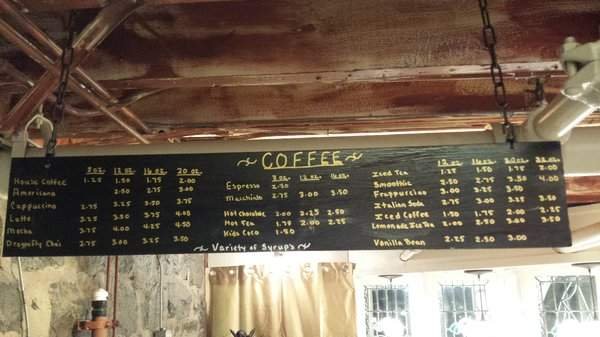 ~ COFFEE ~
8 oz. 12 oz 16 oz. 20 oz
House Coffee 1.25 1.50 1.75 2.00
Americano 2.50 2.75 3.00
Cappuccino 2.75 3.25 3.50 3.75
Latte 2.75 3.25 3.75 4.00
Mocha 3.75 4.00 4.25 4.50
Dragonfly Chai 2.75 3.00 3.25 3.50
8 oz. 12 oz. 16 oz.
Espresso 2.50
Macchiato 2.75 3.00 3.50
Hot chocolate 2.00 2.25 2.50
Hot Tea 1.75 2.00 2.25
Kids Coco 1.50
~ Variety of Syrups ~
12 oz. 16 oz. 20 oz
Iced Tea 1.25 1.50 1.75 2.00
Smoothie 2.50 2.75 3.50 4.00
Frappuccino 3.00 3.25 3.50
Italian Soda 2.75 3.00 3.25 3.50
Iced Coffee 1.50 1.75 2.00 2.25
Lemonade Ice Tea 2.00 2.50 3.00 3.50
Vanilla Bean 2.25 2.50 3.00